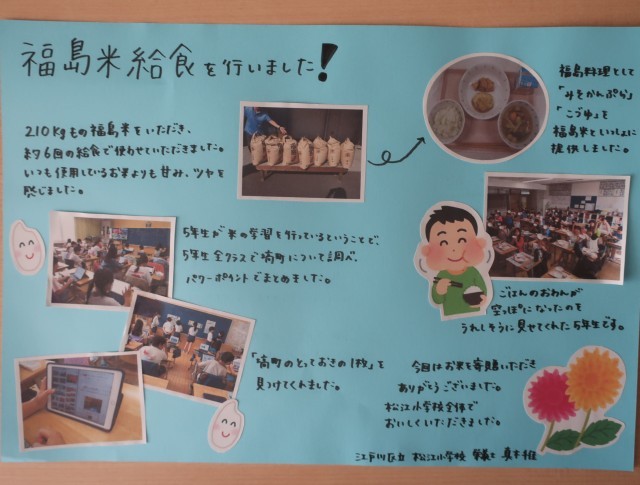 福島米給食を行いました!
210kgもの福島米をいただき、
約6回の給食で使わせていただきました。
いつも使用しているお米よりも甘み、ツヤを
感じました。
福島料理として
「みそかんぷら」
「こづゆ」を
福島米といっしょに
提供しました。
5年生が米の学習を行っているということで、
5年生全クラスで塙町について調べ、
パワーポイントでまとめました。
ごはんのおわんが
空っぽになったのを
うれしそうに見せてくれた5年生です。
「塙町のとっておきの1枚」を
見つけてくれました。
今回はお米を寄贈いただき
ありがとうございました。
松江小学校全体で
おいしくいただきました。
江戸川区立 松江小学校